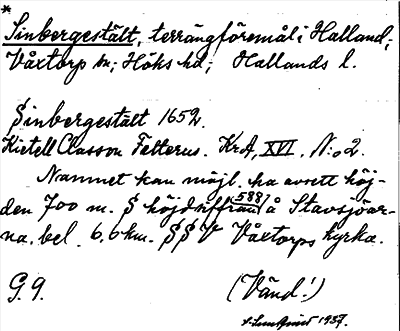 *
Sinbergestält, terrängföremål i Halland;
Våxtorp sn; Höks hd; Hallands l.
Sinbergestält 1652.
Kietell Classon Felterus. KrA, XVI. N:o 2.
Namnet kan möjl. ha avsett höj-
den 700 m. S höjdsiffran 588 å Stavsjöar-
na, bel. 6,6 km. SSV Våxtorps kyrka.
G. 9.
(Vänd!)
1937.